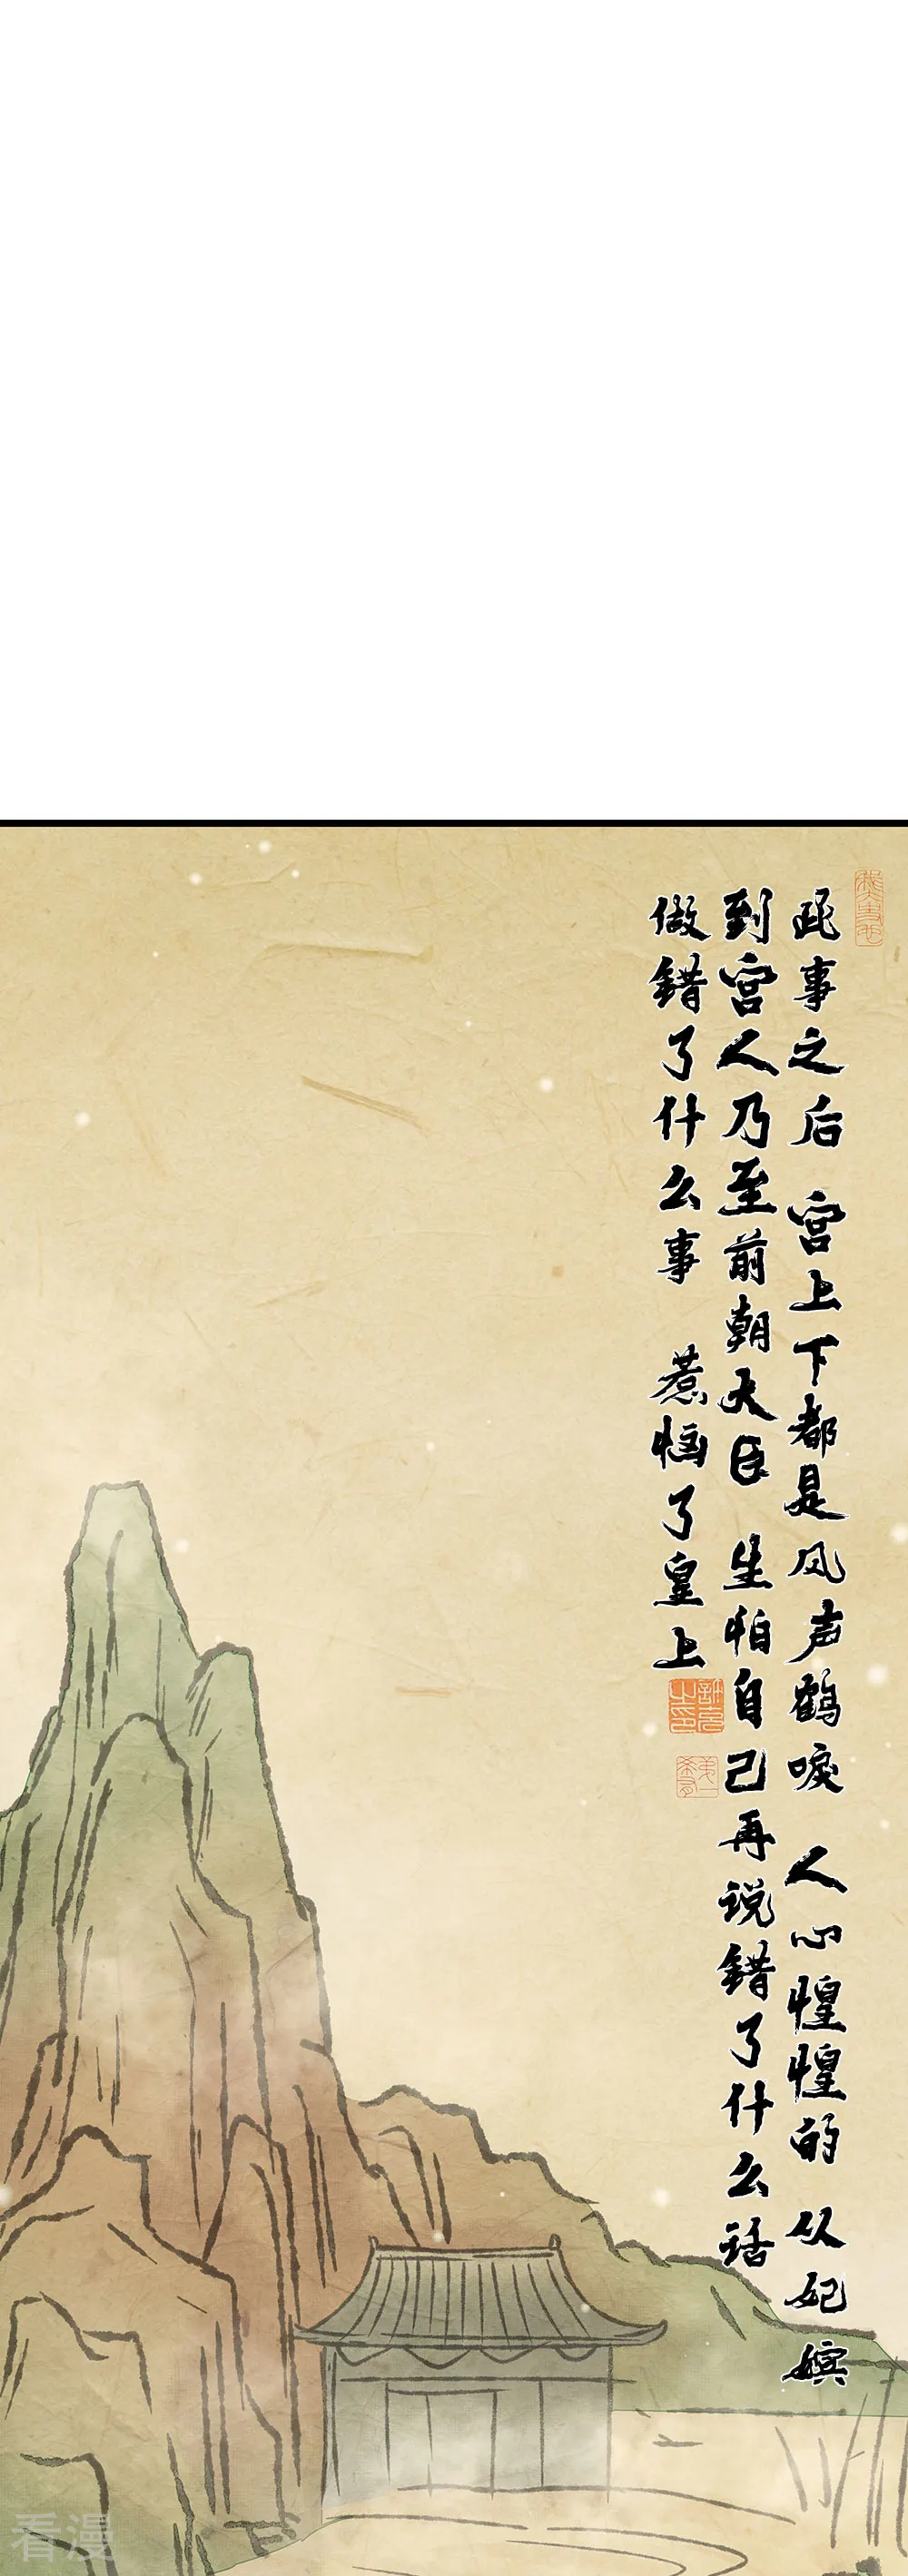 此事之后 宫上下都是风声鹤唳 人心惶惶的 从妃嫔
到宫人乃至前朝大臣 生怕自己再说错了什么话
做错了什么事 惹恼了皇上
看漫